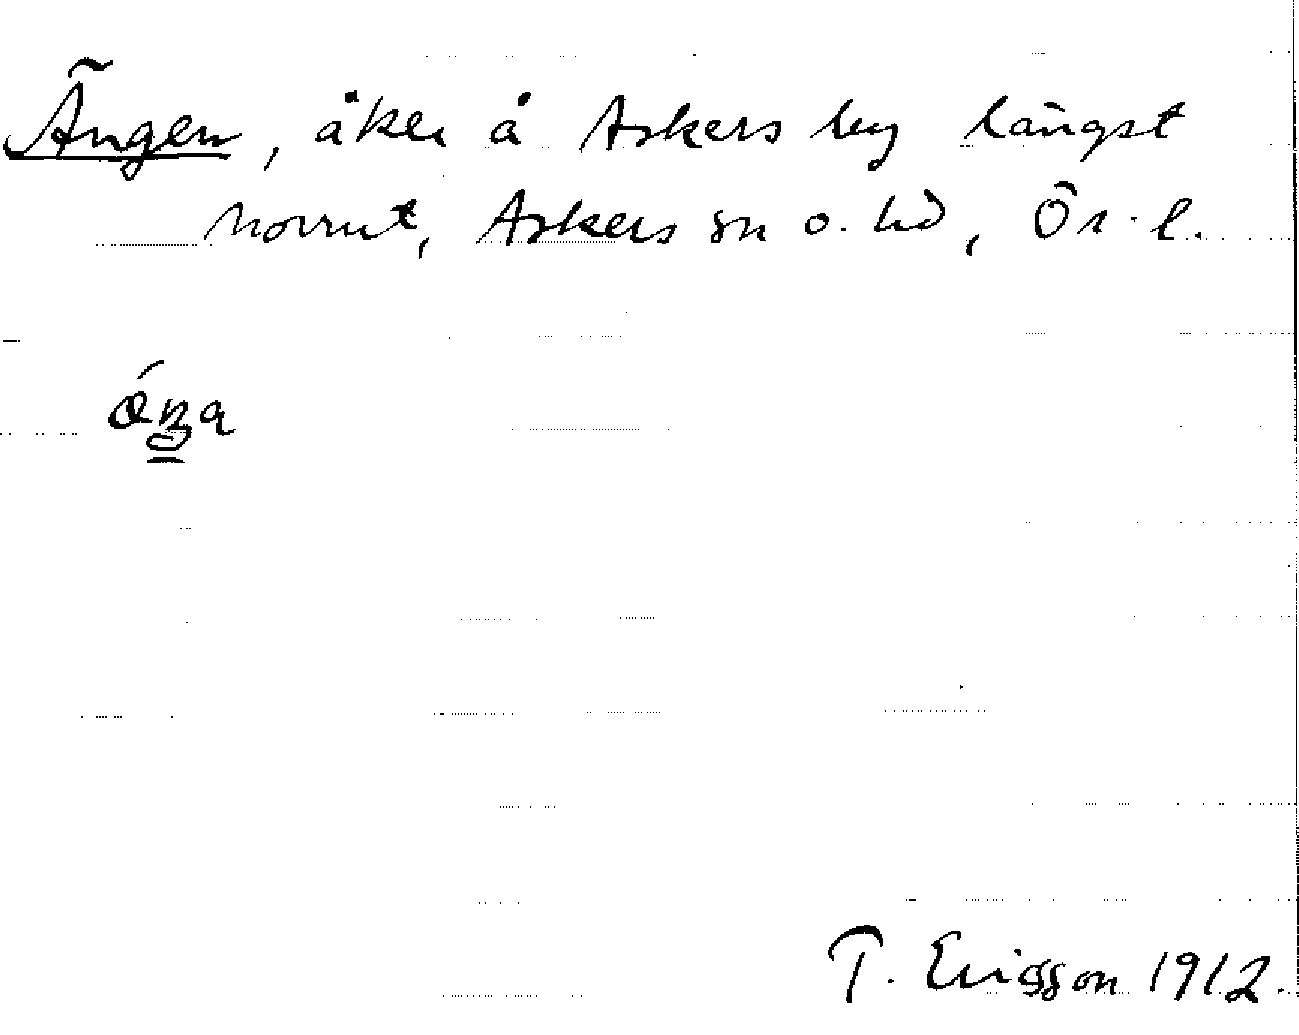 Ängen, åker å Askers by längst
norrut, Askers sn o. hd, Ör. l.
T. Ericsson 1912.